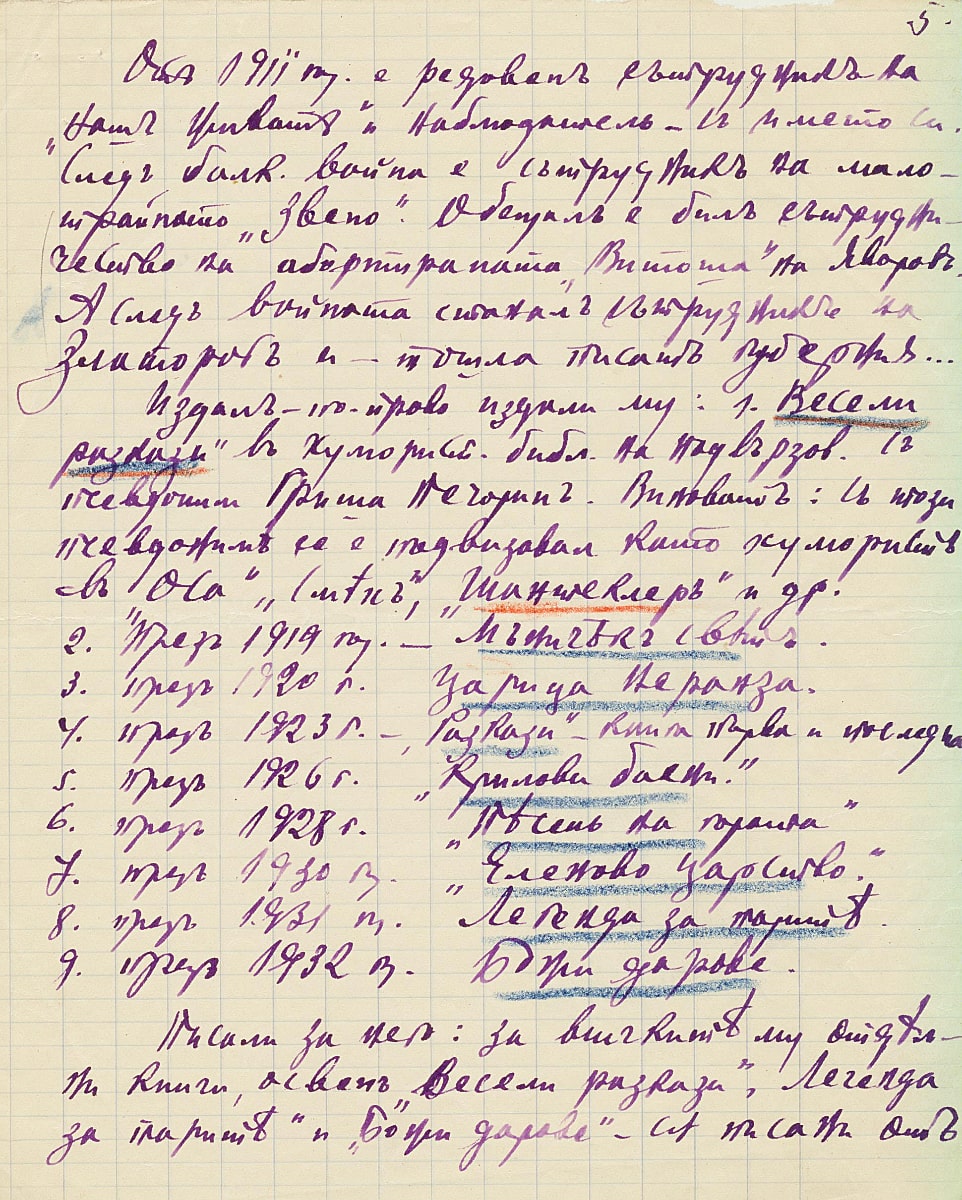 5.
Отъ 1911 год. е редовенъ сътрудникъ на
„Нашъ Животъ" и Наблюдатель – съ името си.
Следъ балк. война е сътрудникъ на мало-
трайното „Звено". Обещалъ е билъ сътрудни-
чество на абортираната „Витоша" на Яворовъ.
А следъ войната станалъ сътрудникъ на
Златорогъ и – тошла писатъ ...
Издалъ – по-право издали му: 1. Весели
разкази" въ хуморист. библ. на Подвързов. Съ
псевдоним Гриша Печоринъ. Виноватъ: съ този
псевдонимъ се е подвизавал като хумористъ
въ „Оса", „Смѣхъ", „Шантеклеръ" и др.
2. Презъ 1919 год. – „Мъничъкъ свѣтъ".
3. презъ 1920 г. Царица Неранза.
4. презъ 1923 г. – „Разкази" – книга първа и последна
5. презъ 1926 г. „Крилови басни."
6. презъ 1928 г. „Пѣсень на гората"
7. презъ 1930 г. „Еленово царство."
8. презъ 1931 г. Легенда за паритѣ.
9. презъ 1932 г. Божи дарове.
Писали за него: за всичкитѣ му отдѣл-
ни книги, освенъ „Весели разкази", Легенда
за паритѣ" и „Божи дарове" – сѫ писани отъ